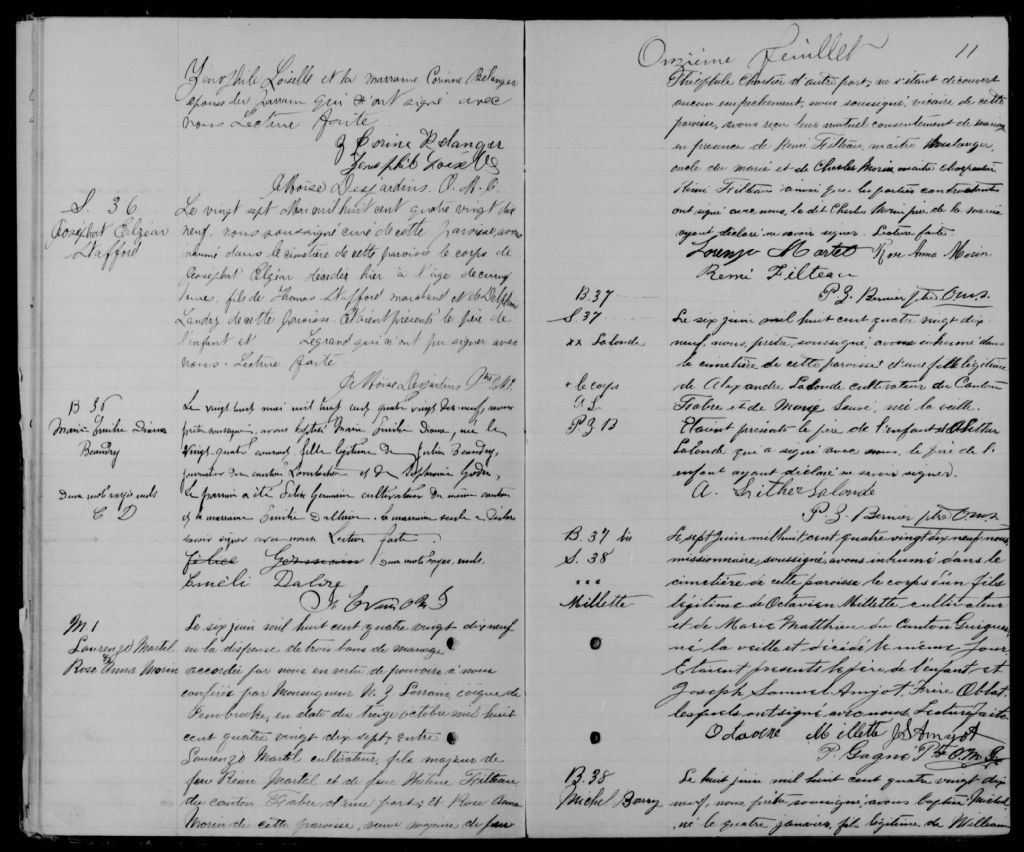 Zénophile Loiselle et la marraine Corinne Bélanger
épouse du parrain qui ont signé avec
nous Lecture faite
Corine Belanger
Zenophile Loiselle
Moïse Desjardins. O. M. I.
S. 36
Josephat Elzéar
Stafford
Le vingt sept Mai mil huit cent quatre vingt dix
neuf. nous soussigné curé de cette paroisse, avons
inhumé dans le cimetière de cette paroisse le corps de
Josephat Elzéar décédé hier à l'âge de cinq
fils de Thomas Stafford marchand et de Delphine
Landry de cette paroisse. Etaient présents le père de
l'enfant et Legrand qui n'ont pu signer avec
nous. Lecture faite
Moïse Desjardins Ptre O.M.I.
B 36
Marie Emilie Diana
Beaudry
deux mots rayés nuls
C D
Le vingt huit mai mil huit cent quatre vingt dix-neuf, nous
prêtre soussigné, avons baptisé Marie Emilie Diana, née le
vingt-quatre courant, fille légitime de Julien Beaudry,
journalier du canton et de Sephronie Godin,
Le parrain a été Félix Germain cultivateur du même canton
et la marraine Emilie Dallaire. La marraine seule a déclaré
savoir signer avec nous Lecture faite.
Félice Germain deux mots rayés nuls
Eméli Dalire
M 1
Laurenzo Martel
&
Rose Anna Morin
Le six juin mil huit cent quatre vingt dix neuf
vu la dispense de trois bans de mariage
accordée par nous en vertu de pouvoirs à nous
conférés par Monseigneur N. Z. Lorrain, évêque de
Pembroke, en date du treize octobre mil huit
cent quatre vingt dix sept, entre
Laurenzo Martel cultivateur, fils majeur de
feu Rémi Martel et de feu Filteau
du canton Fabre d'une part, et Rose Anna
Morin de cette paroisse, veuve majeure de feu
Onzième feuillet 11
Théophile Chartier d'autre part; ne s'étant découvert
aucun empêchement, nous soussigné, vicaire de cette
paroisse, avons reçu leur mutuel consentement de mariage
en présence de Rémi Filteau, maître boulanger,
oncle du marié et de Charles Morin maître charpentier
Rémi Filteau ainsi que les parties contractantes
ont signé avec nous, le dit Charles Morin père de la mariée
ayant déclaré ne savoir signer. Lecture faite
Lourenzo Martel Rose Anna Morin
Remi Filteau
P. Z. Bernier ptre O.m.i.
B. 37
S. 37
xx Lalonde
+ le corps
A L
P Z B
Le six juin mil huit cent quatre vingt dix
neuf, nous, prêtre, soussigné, avons inhumé dans
le cimetière de cette paroisse + d'une fille légitime
de Alexandre Lalonde cultivateur du Canton
Fabre et de Marie Sauvé, née la veille.
Etaient présents le père de l'enfant et A. Esther
Lalonde qui a signé avec nous, le père de l'
enfant ayant déclaré ne savoir signer.
A. Esither Lalonde
P. Z. Bernier ptre O.m.i.
B. 37 bis
S. 38
x x x
Millette
Le sept juin mil huit cent quatre vingt dix neuf, nous
missionnaire soussigné, avons inhumé dans le
cimetière de cette paroisse le corps d'un fils
légitime de Octavien Millette cultivateur
et de Marie Matthieu du Canton Guigues,
né la veille et décédé le même jour.
Etaient présents le père de l'enfant et
Joseph Samuel Amyot, Frère Oblat.
lesquels ont signé avec nous. Lecture faite
Odaviee Millette J S Amyot
P. Gagné Ptre O.M.I.
B. 38
Michel Barry
Le huit juin mil huit cent quatre vingt dix
neuf, nous prêtre soussigné avons baptisé Michel
né le quatre janvier, fils légitime de William